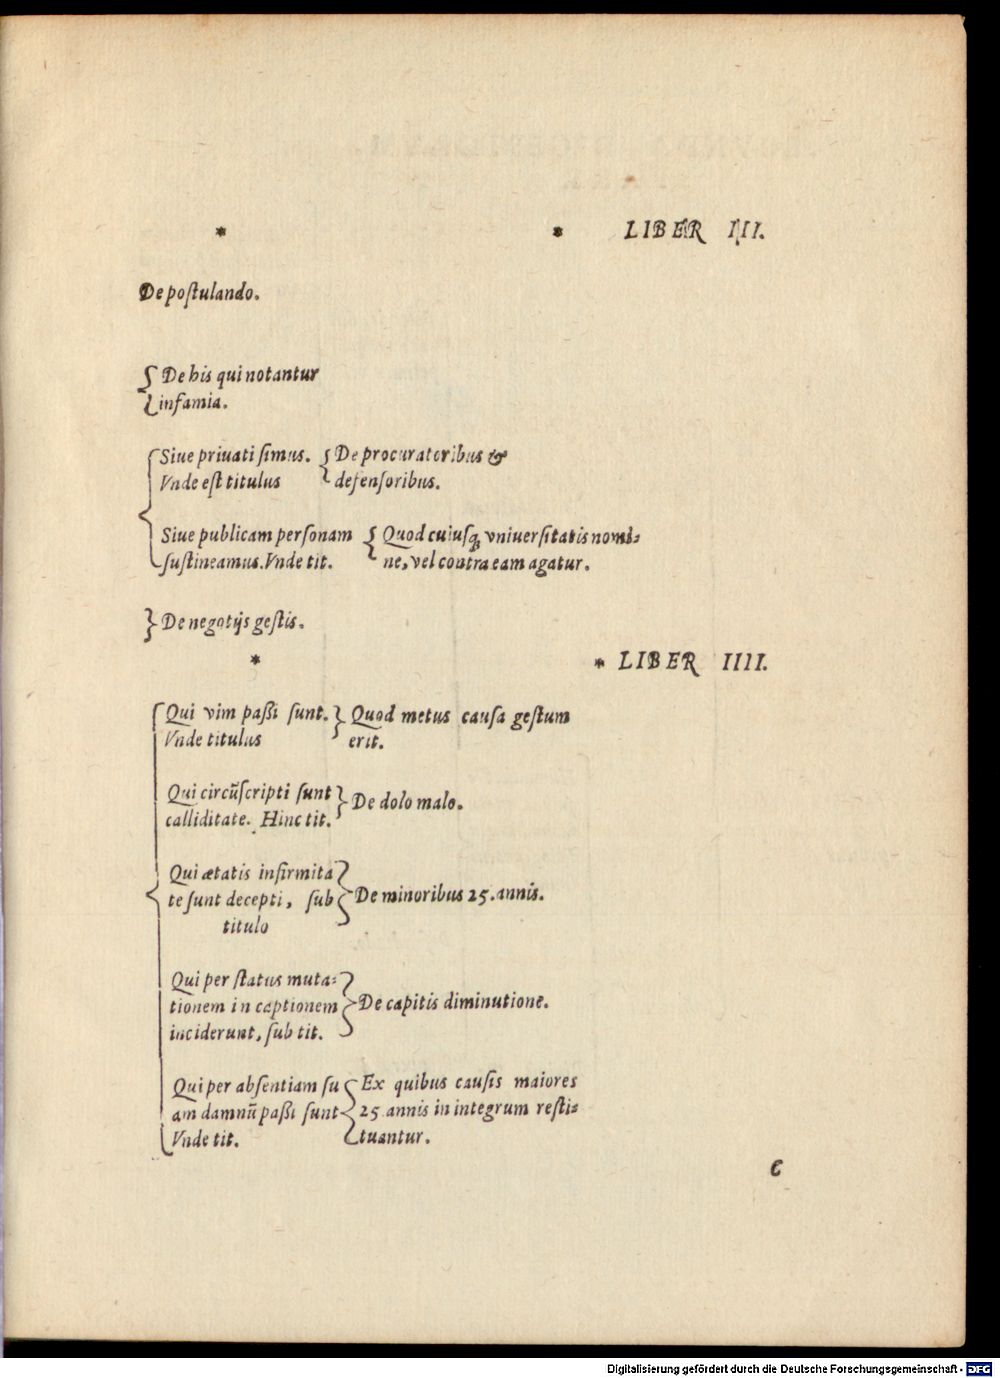 * * LIBER III.
De postulando.
De his qui notantur
infamia.
Siue priuati simus. De procuratoribus &
Vnde est titulus defensoribus.
Siue publicam personam Quod cuiusq; vniuersitatis nomi=
sustineamus. Vnde tit. ne, vel contra eam agatur.
De negotijs gestis.
* * LIBER IIII.
Qui vim passi sunt. Quod metus causa gestum
Vnde titulus erit.
Qui circũscripti sunt De dolo malo.
calliditate. Hinc tit.
Qui ætatis infirmita
te sunt decepti, sub De minoribus 25. annis.
titulo
Qui per status muta=
tionem in captionem De capitis diminutione.
inciderunt, sub tit.
Qui per absentiam su Ex quibus causis maiores
am damnũ passi sunt 25 annis in integrum resti=
Vnde tit. tuantur.
C
Digitalisierung gefördert durch die Deutsche Forschungsgemeinschaft - DFG